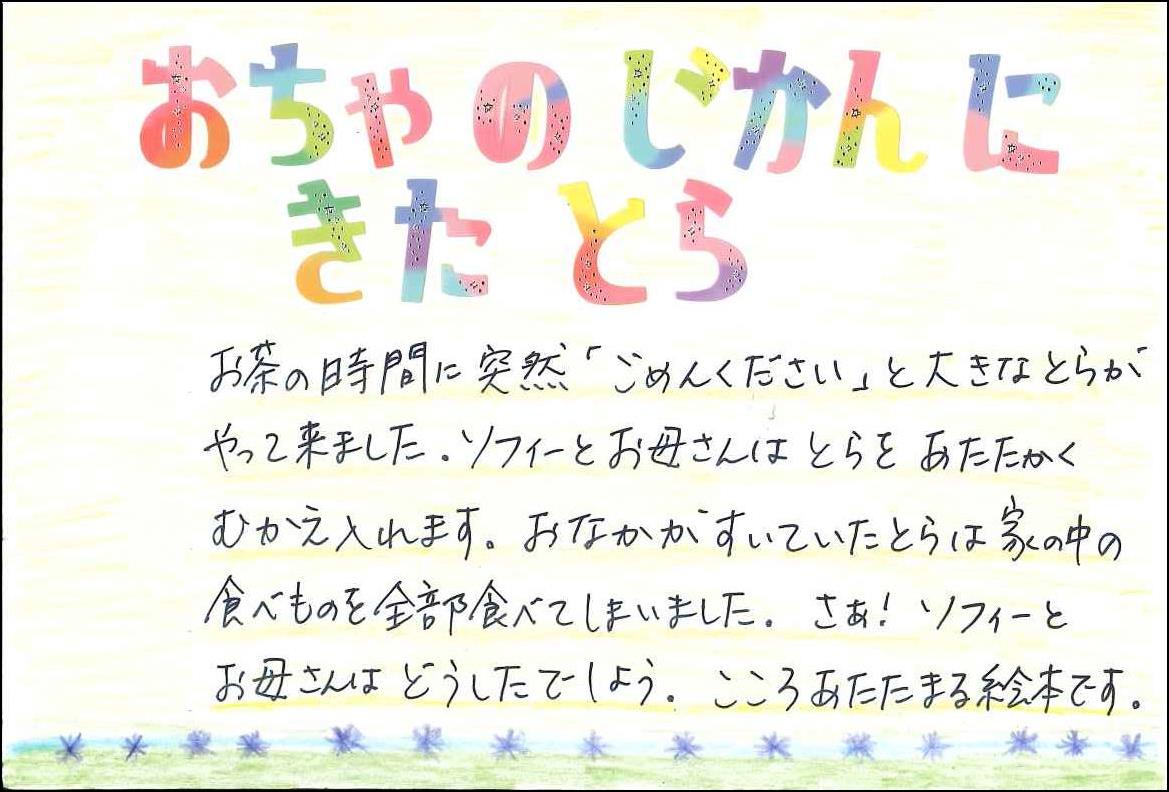 おちゃのじかんに
きたとら
お茶の時間に突然「ごめんください」と大きなとらが
やって来ました。ソフィーとお母さんはとらをあたたかく
むかえ入れます。おなかがすいていたとらは家の中の
食べものを全部食べてしまいました。さぁ!ソフィーと
お母さんはどうしたでしょう。こころあたたまる絵本です。